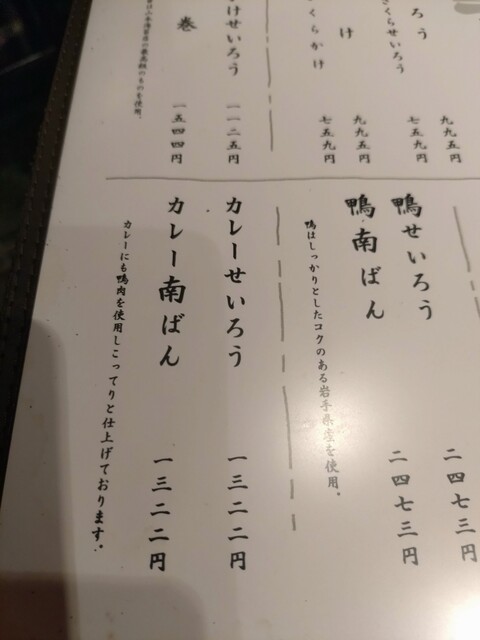 ろう
九九五円
さくらせいろう
七五九円
け
九九五円
さくらかけ
七五九円
けせいろう
一一二五円
巻
一五四四円
のものを使用。
鴨せいろう
二四七三円
鴨南ばん
二四七三円
鴨はしっかりとしたコクのある岩手県産を使用。
カレーせいろう
一三二二円
カレー南ばん
一三二二円
カレーにも鴨肉を使用しこってりと仕上げております。